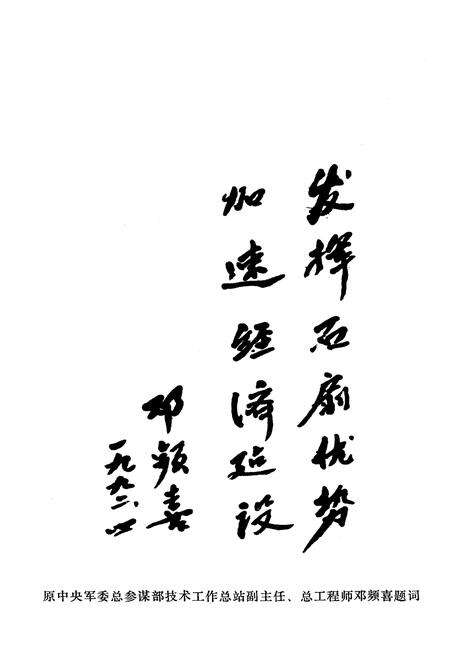 发挥石扇优势
加速经济建设
邓频喜
一九九二、四
原中央军委总参谋部技术工作总站副主任、总工程师邓频喜题词